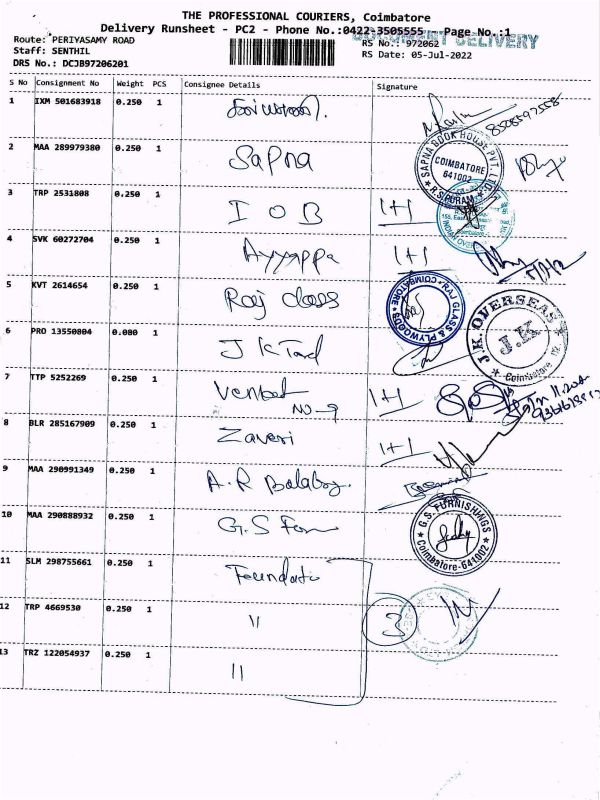 THE PROFESSIONAL COURIERS, Coimbatore
Delivery Runsheet - PC2 - Phone No.:0422-3505555 - Page No.:1
DOCUMENT DELIVERY
Route: PERIYASAMY ROAD
RS No.: 972062
Staff: SENTHIL
RS Date: 05-Jul-2022
DRS No.: DCJB97206201
S No Consignment No Weight PCS Consignee Details Signature
1 IXM 501683918 0.250 1
2 MAA 289979380 0.250 1 Sapna
SAPNA BOOK HOUSE PVT. LTD.
COIMBATORE
641002
R.S.PURAM
3 TRP 2531808 0.250 1 I O B 1+1
4 SVK 60272704 0.250 1 Ayyappa 1+1
5 KVT 2614654 0.250 1 Raj class
RAJ GLASS & PLYWOODS
COIMBATORE
6 PRO 13550004 0.000 1 J K Tard
J.K. OVERSEAS
J.K
Coimbatore
7 TTP 5252269 0.250 1 Venket 1+1
NO-9
8 BLR 285167909 0.250 1 Zaveri 1+1
9 MAA 290991349 0.250 1 A.R Balaby.
10 MAA 290888932 0.250 1 G.S Fan
G.S. FURNISHINGS
Coimbatore-641002
11 SLM 298755661 0.250 1 Foundati
12 TRP 4669530 0.250 1 " 3
13 TRZ 122054937 0.250 1 "